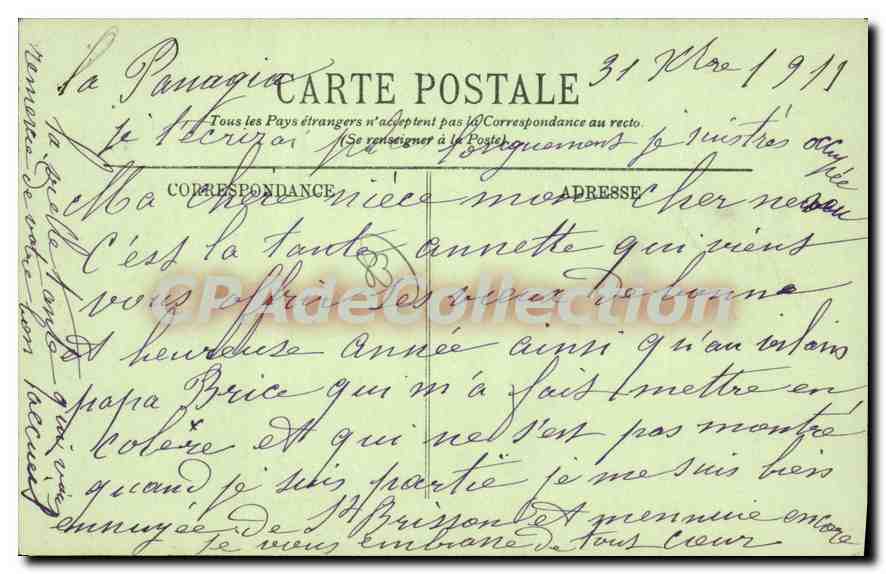 la Panagia
31 Xbre 1911
CARTE POSTALE
Tous les Pays étrangers n'acceptent pas la Correspondance au recto.
(Se renseigner à la Poste)
je t'écrirai plus longuement je suis très occupée
CORRESPONDANCE
ADRESSE
Ma chere nièce mon cher neveu
c'est la tante annette qui viens
vous offrir ses vœux de bonne
et heureuse année ainsi qu'au vilain
papa Brice qui m'a fais mettre en
colère et qui ne s'est pas montré
quand je suis partie je me suis bien
ennuyée de St Brisson et mennuie encore
je vous embrasse de tout cœur
ta vielle tante qui vous
remercie de votre bon accueil
CPAdeCollection